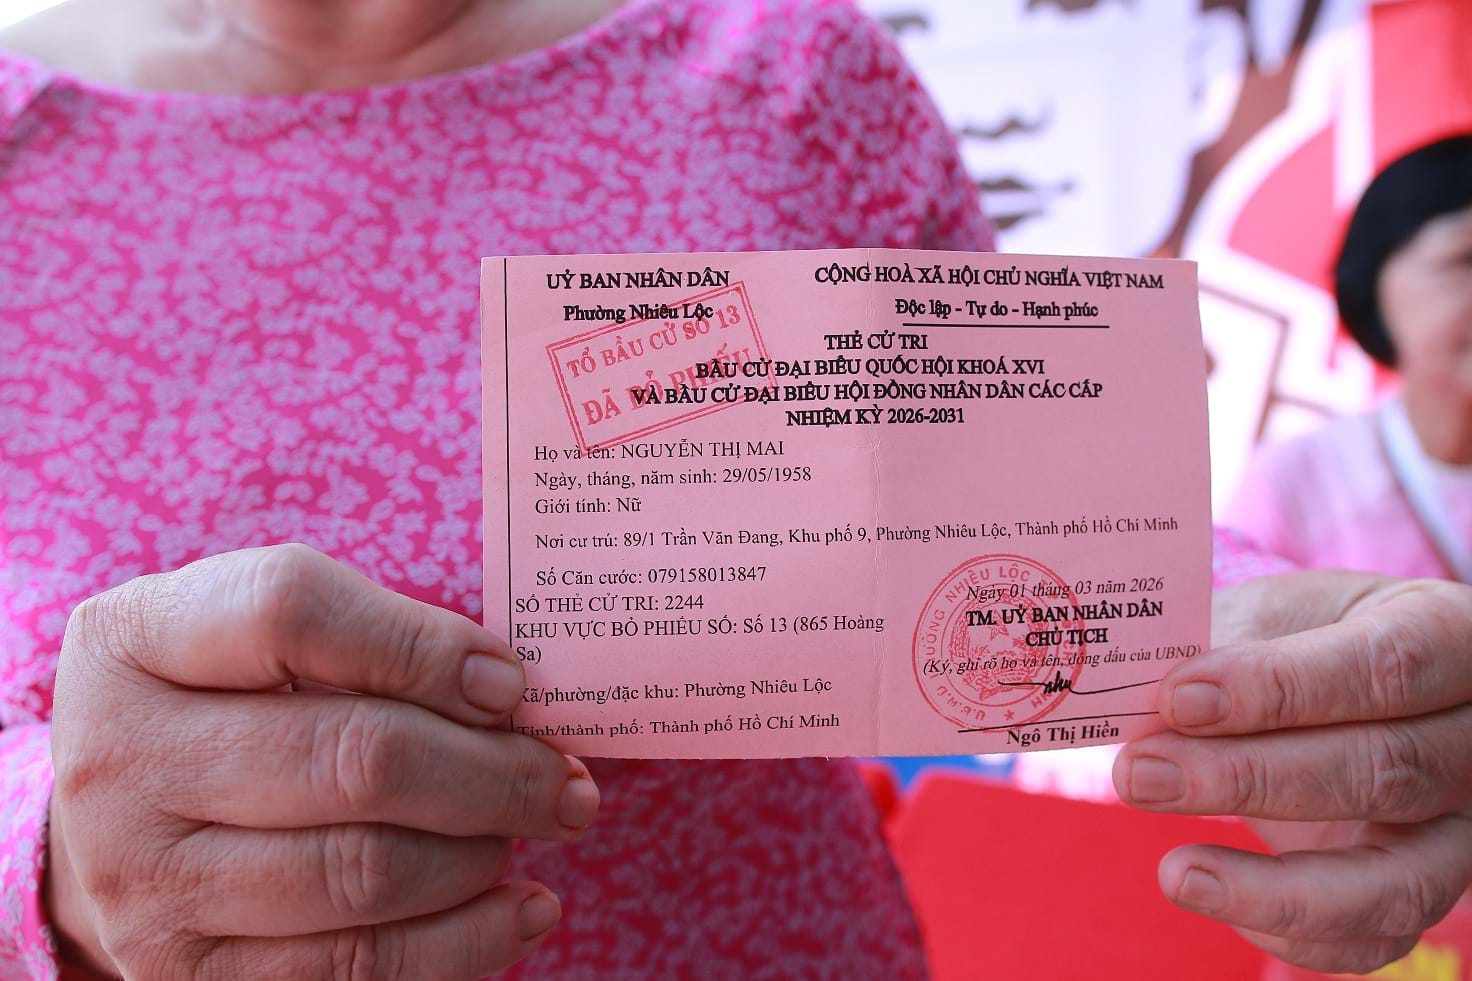 UỶ BAN NHÂN DÂN
Phường Nhiêu Lộc
CỘNG HOÀ XÃ HỘI CHỦ NGHĨA VIỆT NAM
Độc lập - Tự do - Hạnh phúc
TỔ BẦU CỬ SỐ 13
ĐÃ BỎ PHIẾU
THẺ CỬ TRI
BẦU CỬ ĐẠI BIỂU QUỐC HỘI KHOÁ XVI
VÀ BẦU CỬ ĐẠI BIỂU HỘI ĐỒNG NHÂN DÂN CÁC CẤP
NHIỆM KỲ 2026-2031
Họ và tên: NGUYỄN THỊ MAI
Ngày, tháng, năm sinh: 29/05/1958
Giới tính: Nữ
Nơi cư trú: 89/1 Trần Văn Đang, Khu phố 9, Phường Nhiêu Lộc, Thành phố Hồ Chí Minh
Số Căn cước: 079158013847
SỐ THẺ CỬ TRI: 2244
KHU VỰC BỎ PHIẾU SỐ: Số 13 (865 Hoàng
Sa)
Xã/phường/đặc khu: Phường Nhiêu Lộc
Tỉnh/thành phố: Thành phố Hồ Chí Minh
Ngày 01 tháng 03 năm 2026
TM. UỶ BAN NHÂN DÂN
CHỦ TỊCH
(Ký, ghi rõ họ và tên, đóng dấu của UBND)
Ngô Thị Hiền